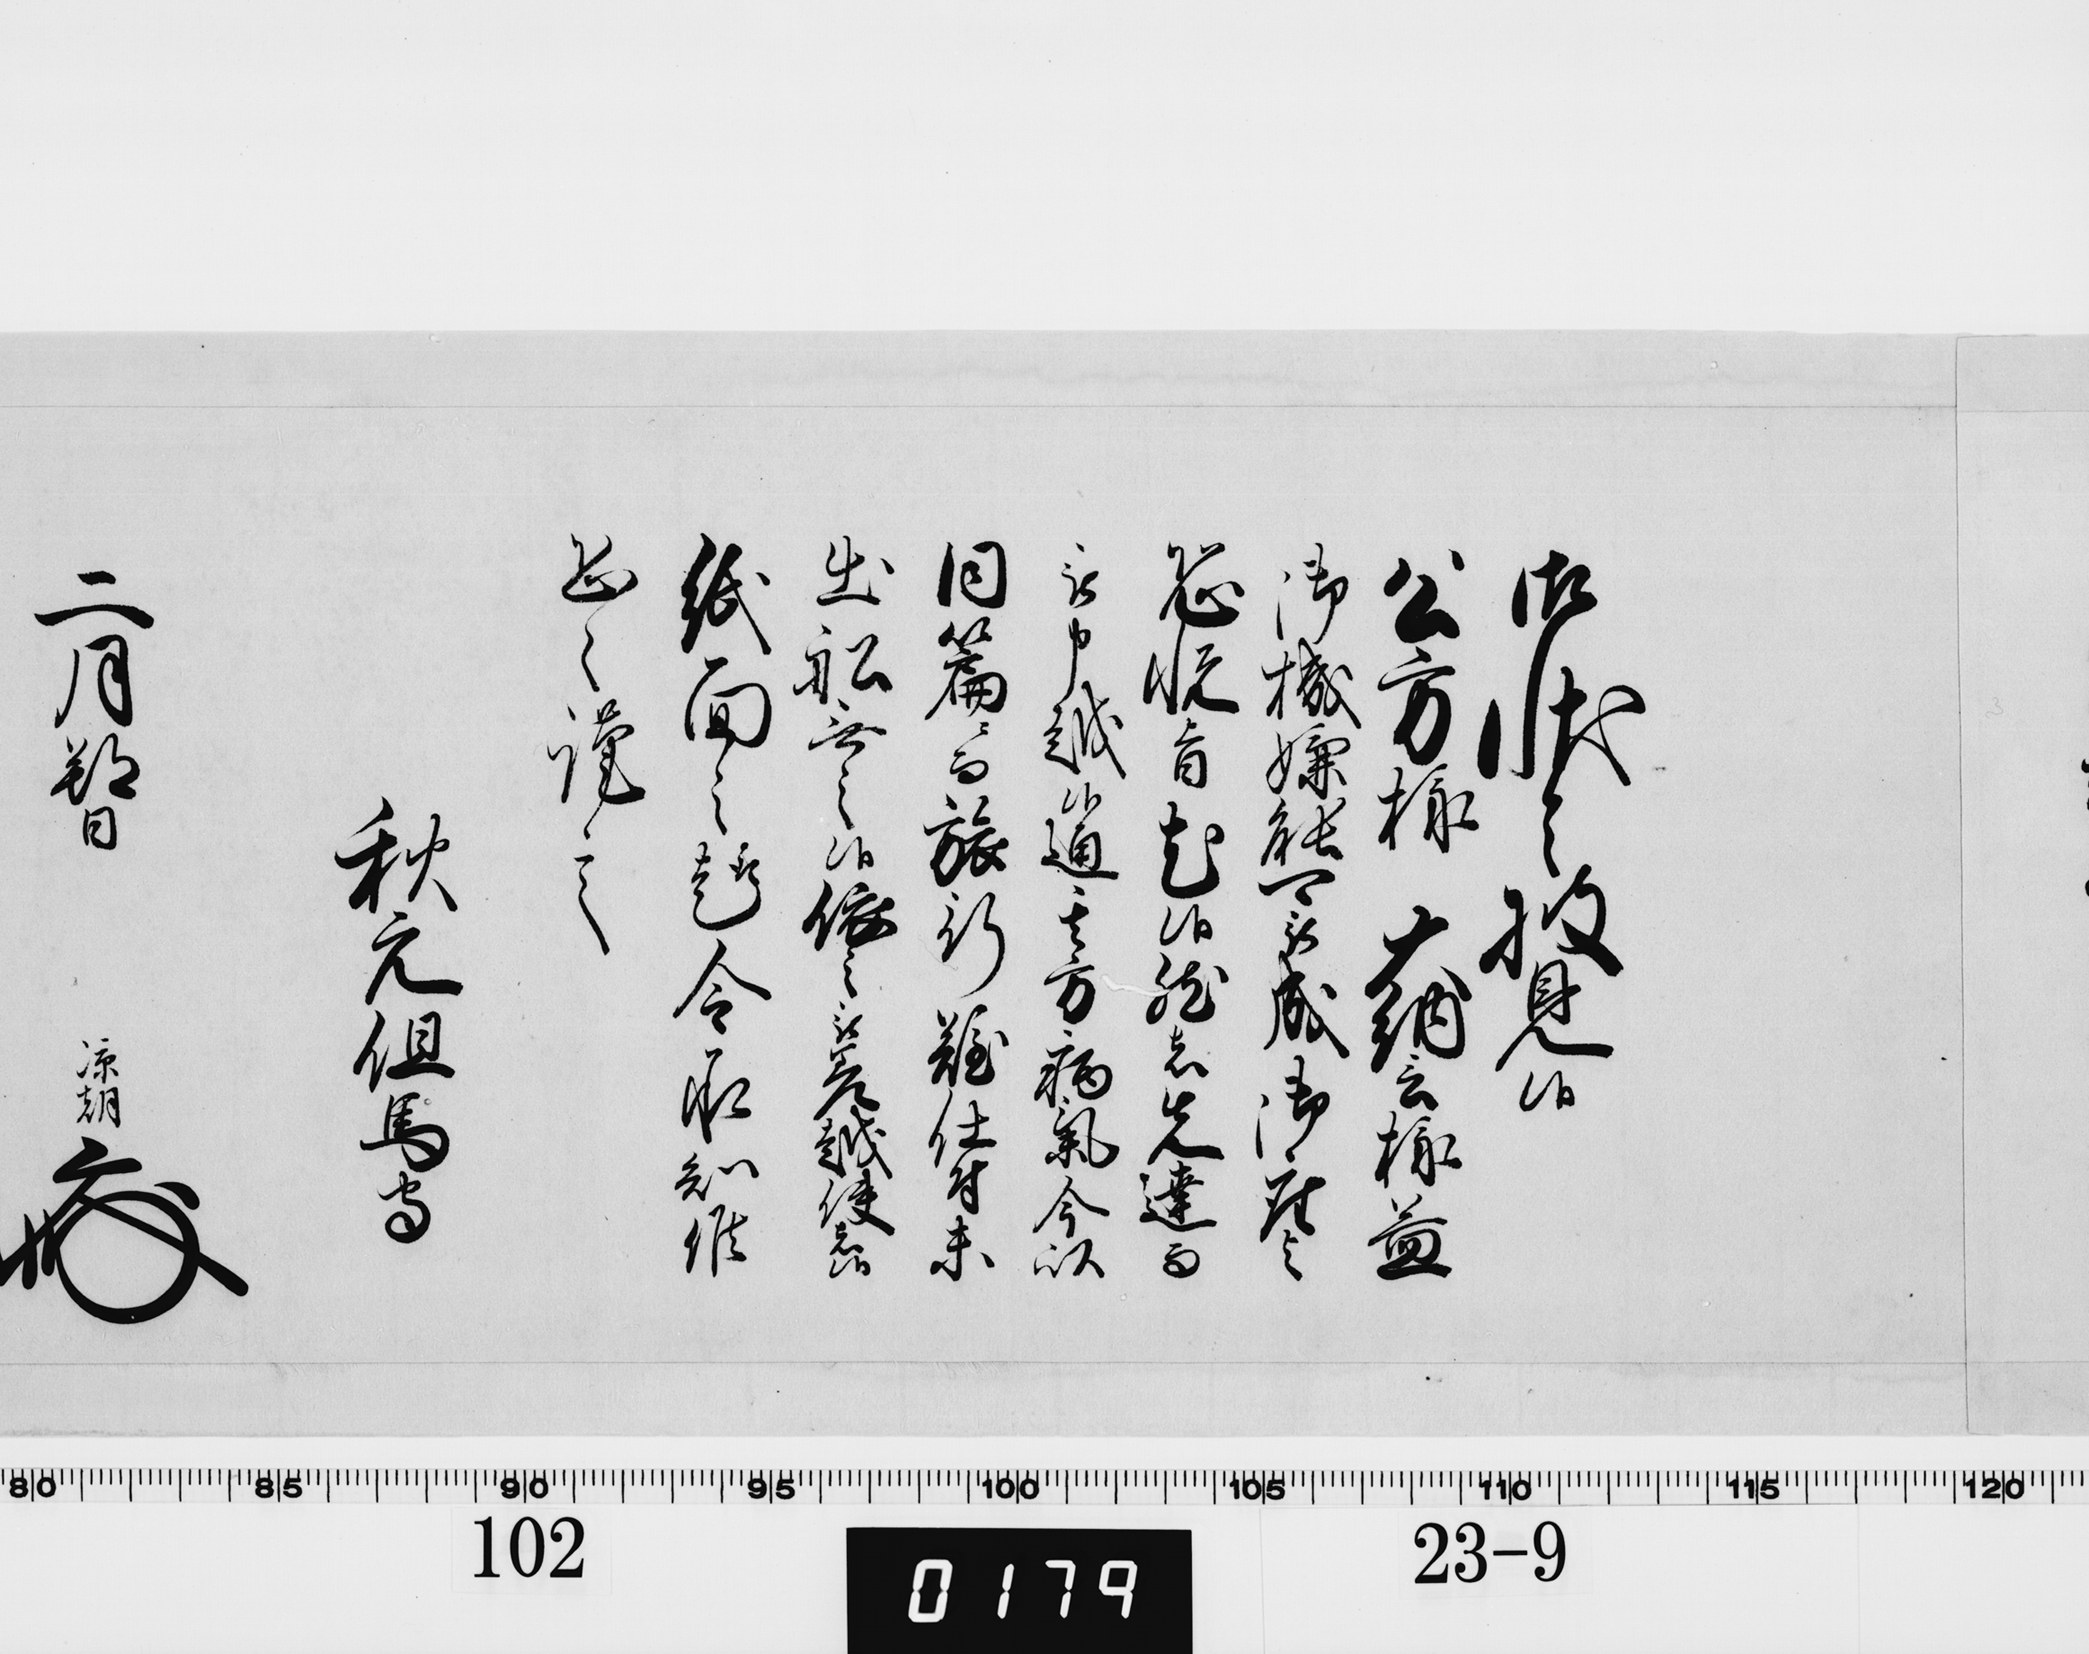 御状令披見候
公方様 大納言様益
御機嫌能可被成御座と
恐悦旨尤候然者先達而
被申越候通其方病氣今以
同篇ニ而旅行難仕付未
出船無之候依之被差越使者候
紙面之趣令承知候
恐々謹言
秋元但馬守
二月朔日 凉朝
102
0179
23-9
80 85 90 95 100 105 110 115 120